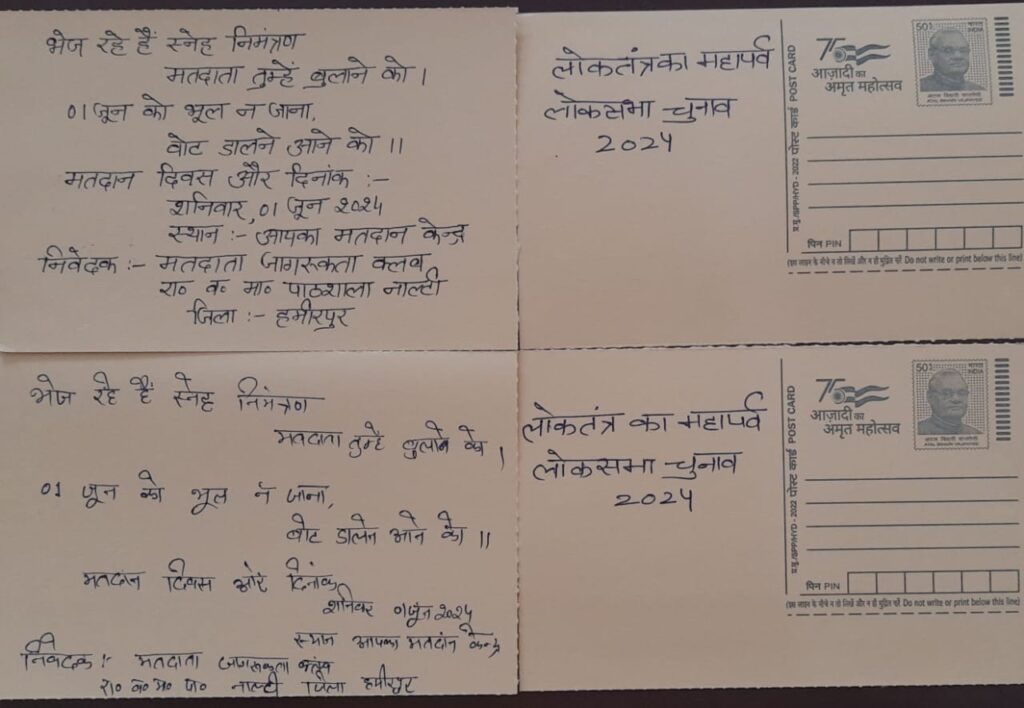 भेज रहे हैं स्नेह निमंत्रण
मतदाता तुम्हें बुलाने को ।
01 जून को भूल न जाना,
वोट डालने आने को ।।
मतदान दिवस और दिनांक :-
शनिवार, 01 जून 2024
स्थान :- आपका मतदान केन्द्र
निवेदक :- मतदाता जागरूकता क्लब
रा० व० मा० पाठशाला नाल्टी
जिला :- हमीरपुर
लोकतंत्र का महापर्व
लोकसभा चुनाव
2024
75
आज़ादी का
अमृत महोत्सव
501
भारत INDIA
अटल बिहारी वाजपेयी
ATAL BIHARI VAJPAYEE
पोस्ट कार्ड POST CARD
2022
पिन PIN
(इस लाइन के नीचे न तो लिखें और न ही मुद्रित करें Do not write or print below this line)
भेज रहे हैं स्नेह निमंत्रण
मतदाता तुम्हे बुलाने को ।
01 जून को भूल न जाना,
वोट डालने आने को ।।
मतदान दिवस और दिनांक
शनिवार 01 जून 2024
स्थान आपका मतदान केन्द्र
निवेदक :- मतदाता जागरूकता क्लब
रा० व० मा० पा० नाल्टी जिला हमीरपुर
लोकतंत्र का महापर्व
लोकसभा चुनाव
2024
75
आज़ादी का
अमृत महोत्सव
501
भारत INDIA
अटल बिहारी वाजपेयी
ATAL BIHARI VAJPAYEE
पोस्ट कार्ड POST CARD
2022
पिन PIN
(इस लाइन के नीचे न तो लिखें और न ही मुद्रित करें Do not write or print below this line)